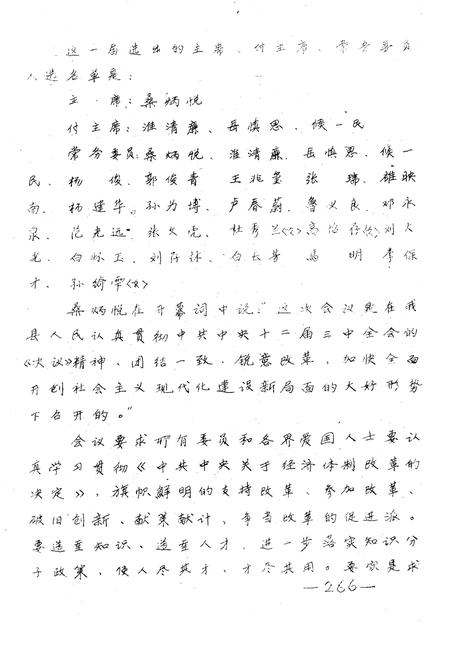 这一届选出的主席、付主席、常务委员
人选名单是：
主 席：桑炳悦
付主席：淮清廉、岳慎思、侯一民
常务委员：桑炳悦、淮清廉、岳慎思、侯一
民、杨 俊、郭俊青 王兆玺 张 瑞、雒映
南、杨建华、孙为博、卢春蔚、鲁义良、邓永
泉、范光远 张文虎、杜秀兰〈女〉高怡 〈女〉刘久
光、白怀玉、刘存 、白长芳 冯 明 李保
才、孙绮雯〈女〉
桑炳悦在开幕词中说：“这次会议是在我
县人民认真贯彻中共中央十二届三中全会的
《决议》精神，团结一致，锐意改革，加快全面
开创社会主义现代化建设新局面的大好形势
下召开的。”
会议要求所有委员和各界爱国人士要认
真学习贯彻《中共中央关于经济体制改革的
决定》，旗帜鲜明的支持改革、参加改革、
破旧创新、献策献计，争当改革的促进派。
要造至知识、造至人才，进一步落实知识分
子政策，使人尽其才，才尽其用。要实是求
—266—